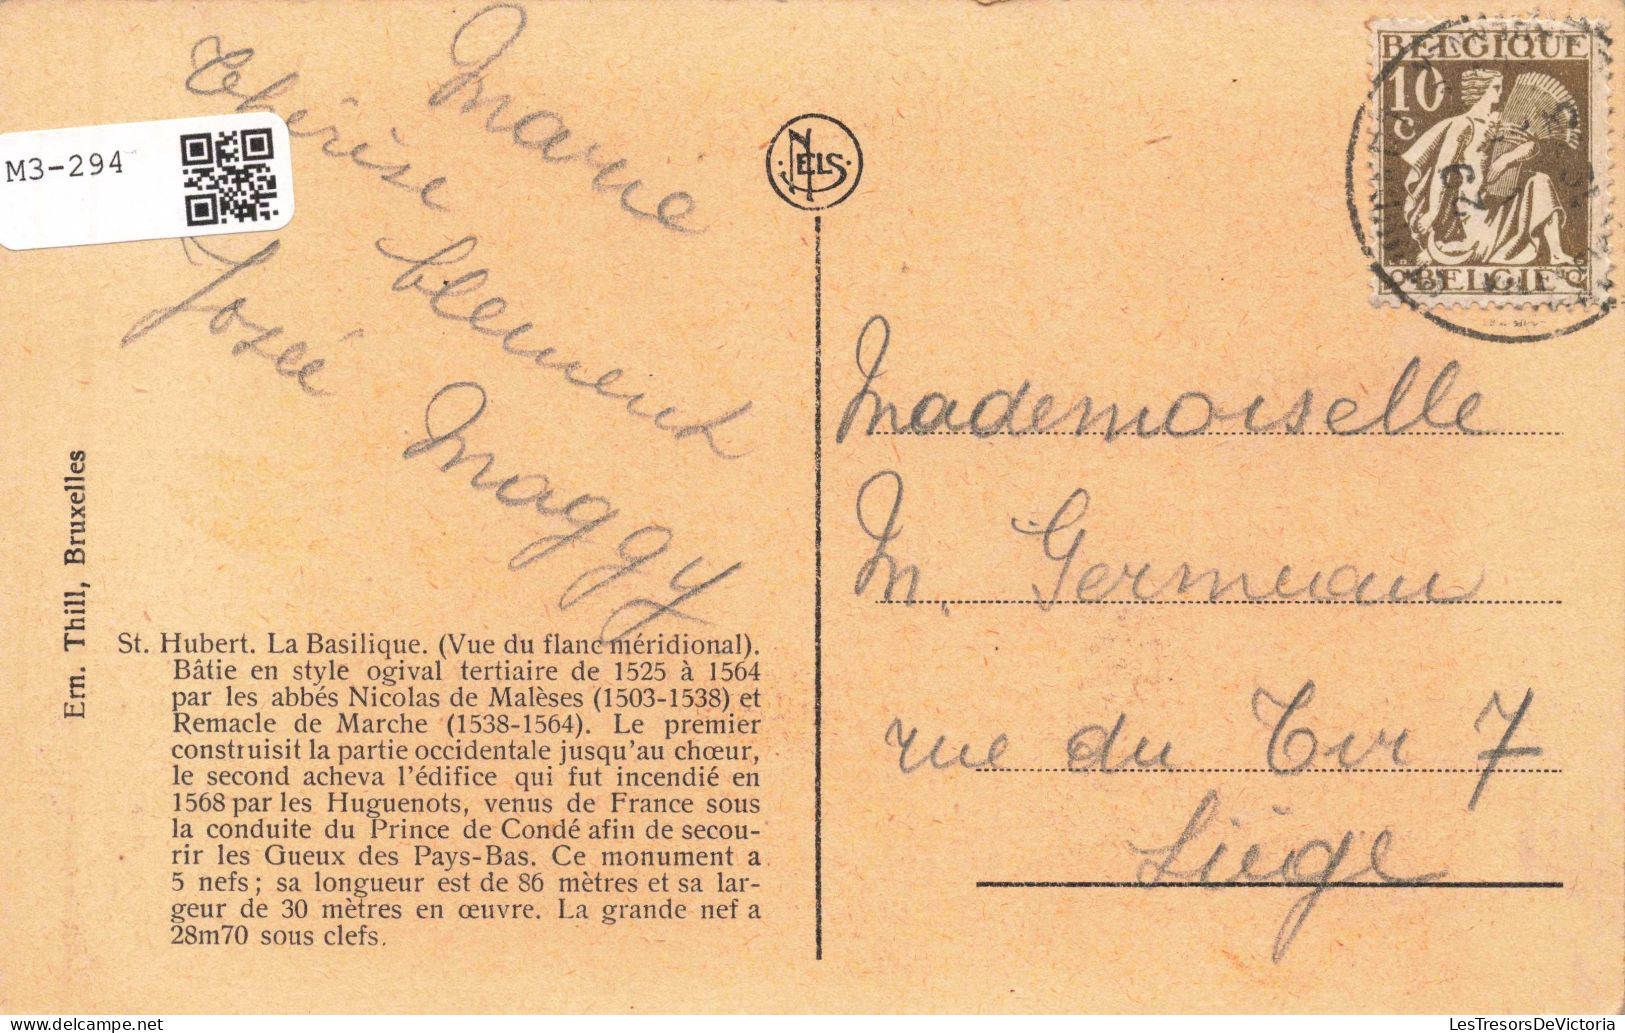 Marie
Thérèse
Clement
Josée
Maggy
M3-294
NELS
BELGIQUE
10
c
BELGIE
29
Mademoiselle
M. Germeau
rue du Tir 7
Liège
Ern. Thill, Bruxelles
St. Hubert. La Basilique. (Vue du flanc méridional).
Bâtie en style ogival tertiaire de 1525 à 1564
par les abbés Nicolas de Malèses (1503-1538) et
Remacle de Marche (1538-1564). Le premier
construisit la partie occidentale jusqu'au chœur,
le second acheva l'édifice qui fut incendié en
1568 par les Huguenots, venus de France sous
la conduite du Prince de Condé afin de secou-
rir les Gueux des Pays-Bas. Ce monument a
5 nefs ; sa longueur est de 86 mètres et sa lar-
geur de 30 mètres en œuvre. La grande nef a
28m70 sous clefs.
www.LesTresorsDeVictoria.com